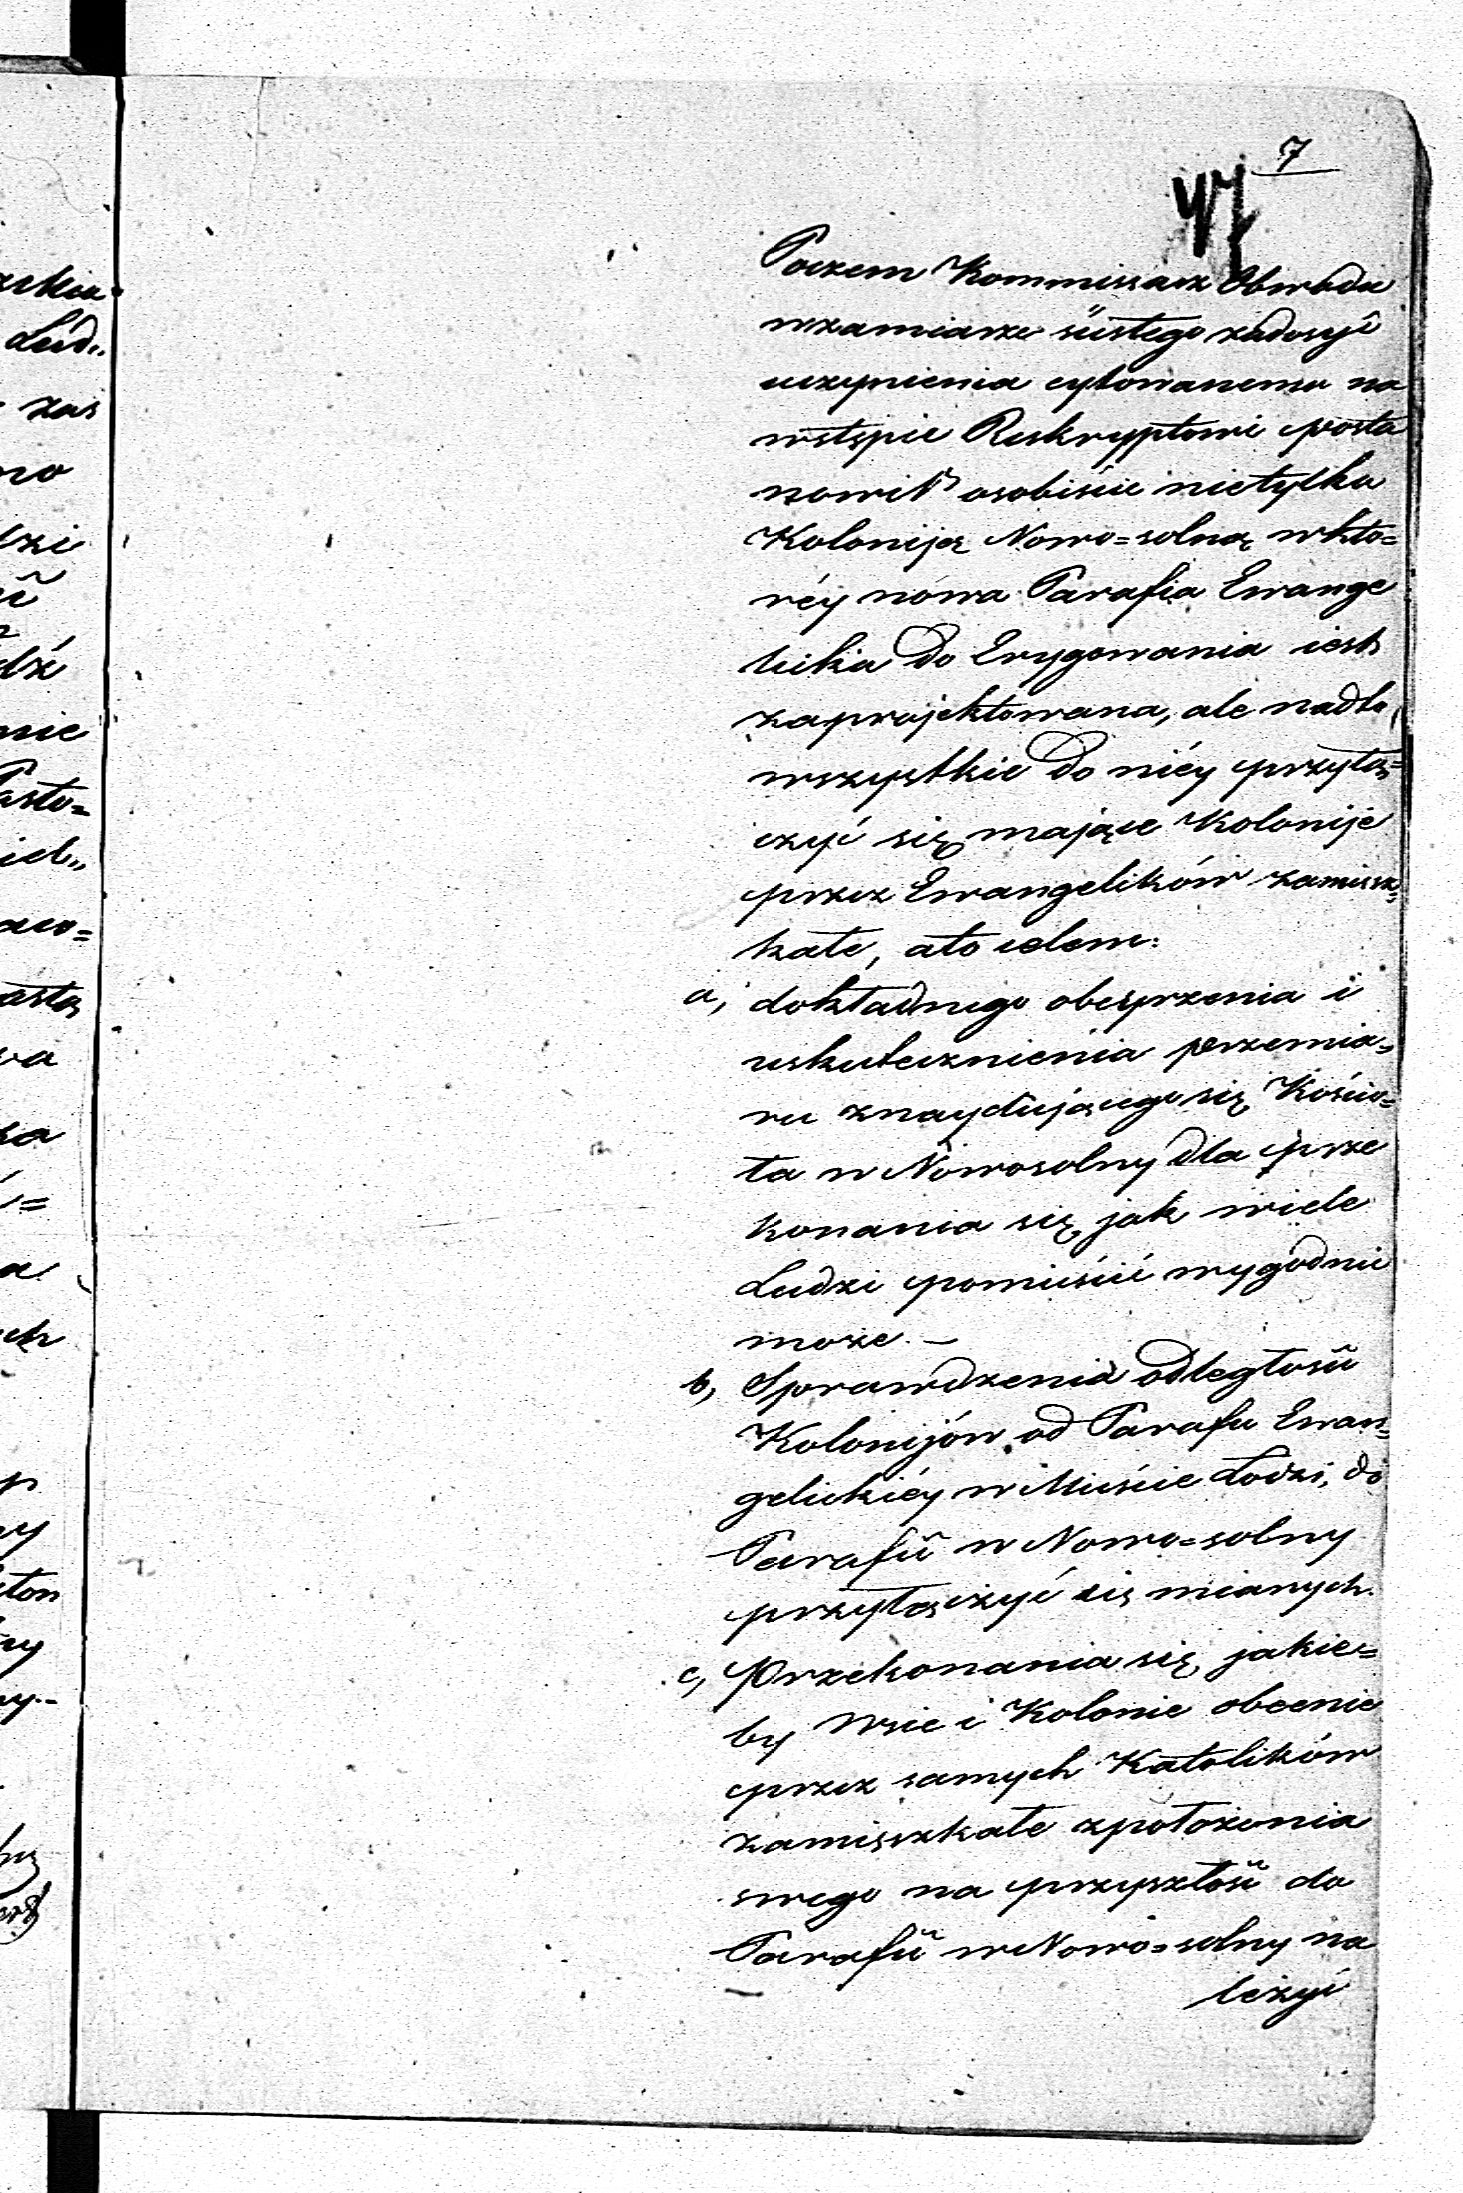 7
47
Poczem Kommissarz Obwodu
wzamiarze ścisłego zadosyć
uczynienia cytowanemu na
wstępie Reskryptowi posta
nowił osobiście nietylko
Koloniją Nowo=solną wktó=
réy nowa Parafia Ewange
licka do Erygowania iest
zaprojektowana, ale nadto
wszystkie do niéy przyłą=
czyć się mające Kolonije
przez Ewangelików zamiesz=
kałe, ato celem:
a, dokładnego obeyrzenia i
uskutecznienia przemia=
ru znaydującego się Kościo=
ła w Nowosolny dla prze
konania się jak wiele
Ludzi pomieścić wygodnie
może. —
b, Sprawdzenia odległości
Kolonijów od Parafii Ewan=
gelickiéy w Mieście Łodzi, do
Parafii w Nowo=solny
przyłączyć się mianych.
c, Przekonania się jakie=
by Wsie i Kolonie obecnie
przez samych Katolików
zamieszkałe zpołożenia
swego na przyszłość do
Parafii w Nowo=solny na
leżyć
zas
no
dzi
nie
Pasto=
wa
a
ch